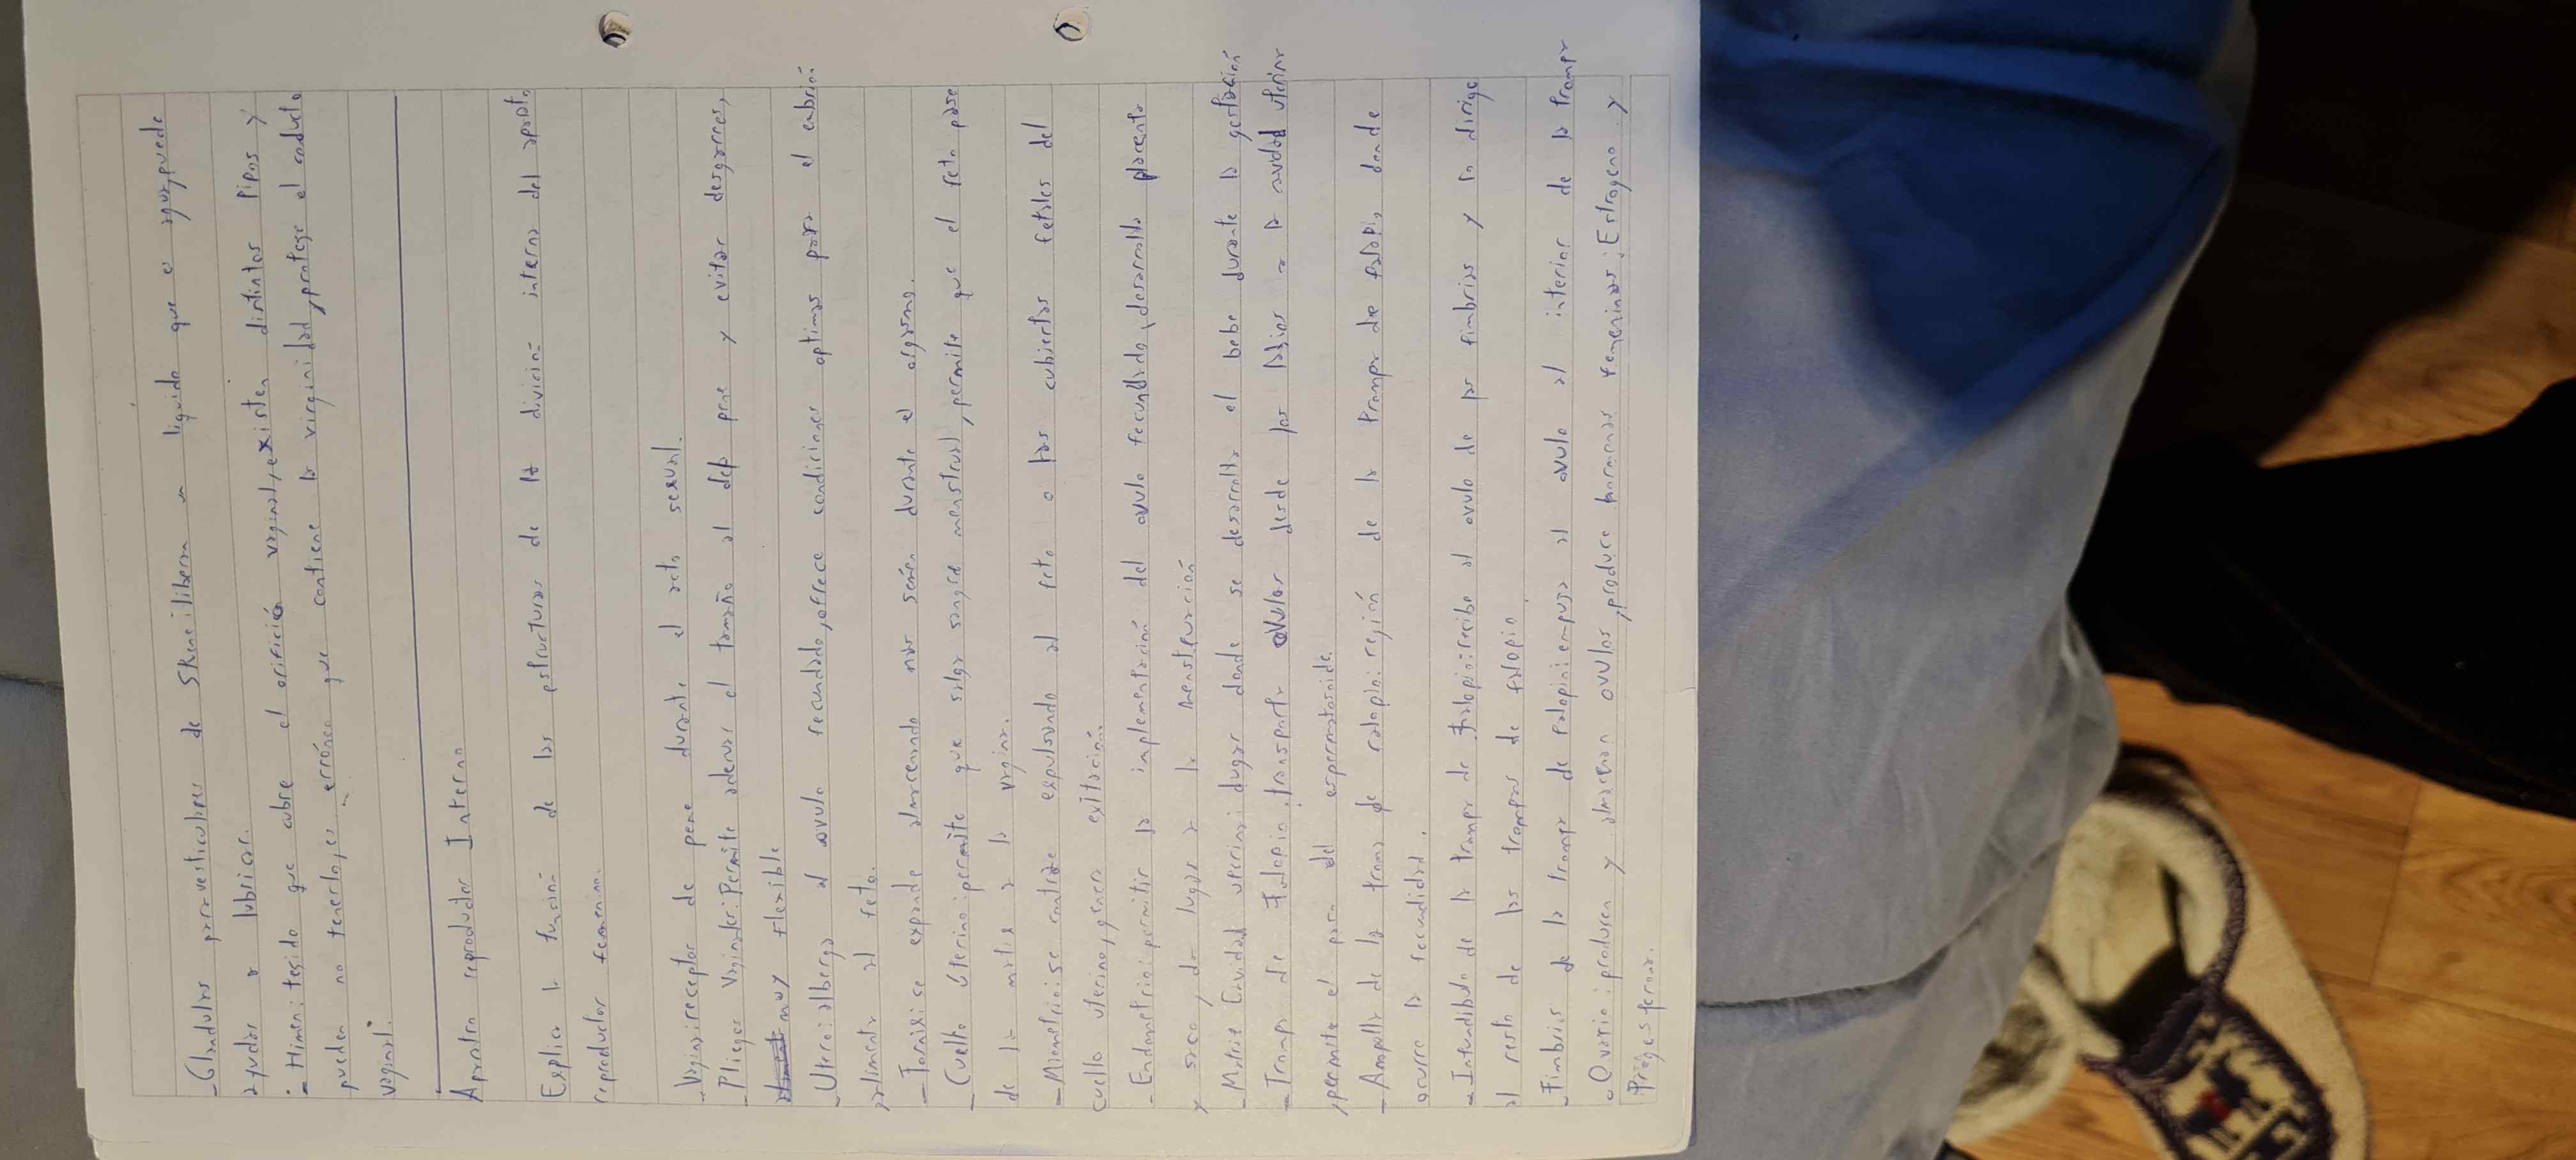 - Glandulas paravesticulares de Skene: libera un liquido que e ayuda, puede
ayudar a lubricar.
- Himen: tegido que cubre el orificio vaginal, existen distintos tipos y
pueden no tenerlo, es erróneo que contiene la virginidad, protege el conducto
vaginal.
Aparatro reproductor Interno
Explica la función de las estructuras de la división interna del aparato
reproductor femenino.
- Vagina: receptor de pene durante el acto sexual.
- Pliegues Vaginales: Permite adecuar el tamaño al del pene y evitar desgarres,
muy flexible
- Utero: alberga al ovulo fecundado, ofrece condiciones optimas para el embrión
alimenta al feto.
- Fornix: se expande almacenando mas semen durante el orgasmo.
- Cuello Uterino: permite que salga sangre menstrual, permite que el feto pase
de la matriz a la vagina.
- Miometrio: se contrae expulsando al feto o las cubiertas fetales del
cuello uterino, genera exitación.
- Endometrio: permitir la implementación del ovulo fecundado, desarrolla placenta
y saco, da lugar a la menstruación
- Matriz Cavidad uterina: lugar donde se desarrolla el bebe durante la gestación
- Tromp. de Falopio: transporta ovulos desde los labios a la cavidad uterina
, permite el paso del espermatozoide.
- Ampolla de la trompa de falopio: región de la trompa de falopi, donde
ocurre la fecundidad.
- Infundibulo de la trompa de falopio: recibe al ovulo de las fimbrias y lo dirige
al resto de las trompas de falopio.
- Fimbrias de la trompa de falopio: empuja al ovulo al interior de la trompa
- Ovario: producen y almacenan ovulos, produce hormonas femeninas: Estrogeno y
Progesterona.